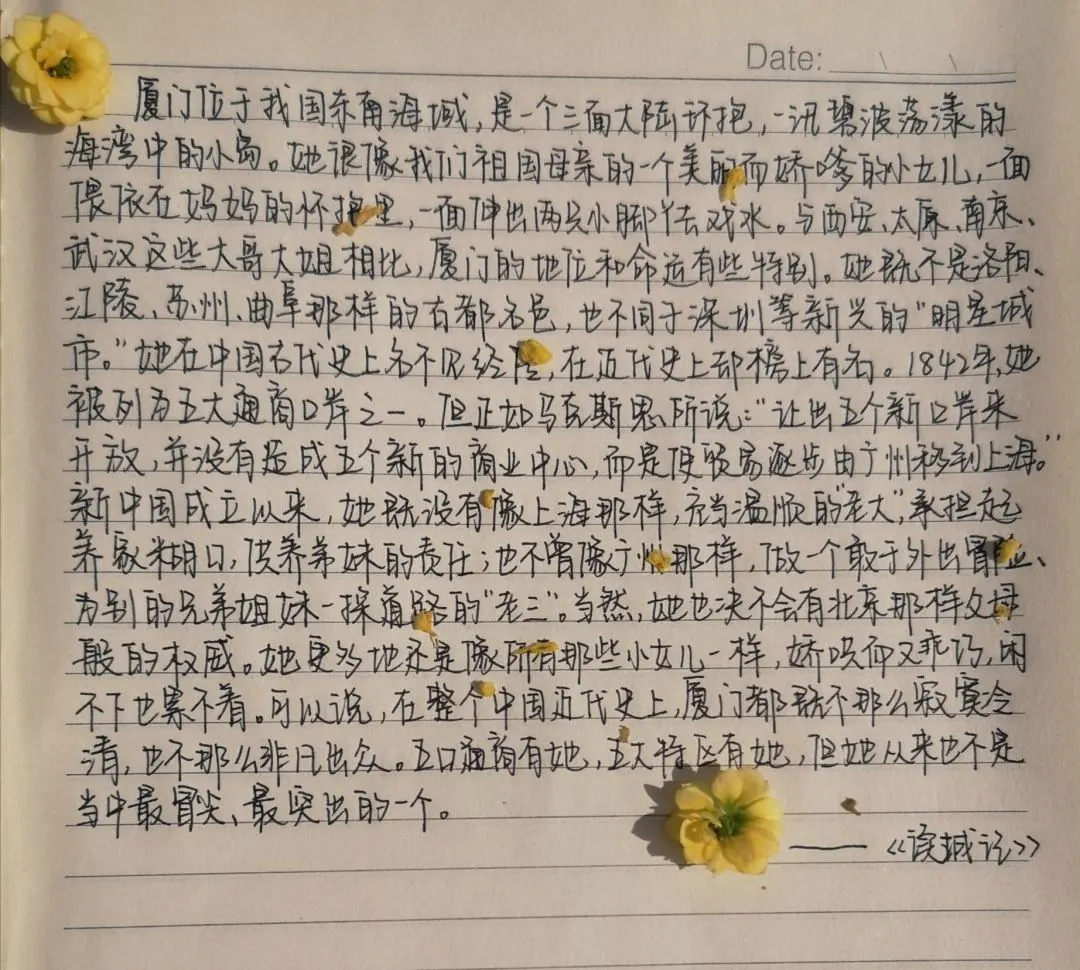 Date:
厦门位于我国东南海域，是一个三面大陆环抱，一汛碧波荡漾的
海湾中的小岛。她很像我们祖国母亲的一个美丽而娇嗲的小女儿，一面
偎依在妈妈的怀抱里，一面伸出两只小脚丫去戏水。与西安、太原、南京、
武汉这些大哥大姐相比，厦门的地位和命运有些特别。她既不是洛阳、
江陵、苏州、曲阜那样的古都名邑，也不同于深圳等新兴的“明星城
市。”她在中国古代史上名不见经传，在近代史上却榜上有名。1842年，她
被列为五大通商口岸之一。但正如马克斯思所说：“让出五个新口岸来
开放，并没有造成五个新的商业中心，而是使贸易逐步由广州移到上海。”
新中国成立以来，她既没有像上海那样，充当温顺的“老大”，承担起
养家糊口，供养弟妹的责任；也不曾像广州那样，做一个敢于外出冒险、
为别的兄弟姐妹一探道路的“老三”。当然，她也决不会有北京那样父母
般的权威。她更多地还是像所有那些小女儿一样，娇哄仰又乖巧，闲
不下也累不着。可以说，在整个中国近代史上，厦门都既不那么寂寞冷
清，也不那么非凡出众。五口通商有她，五大特区有她，但她从来也不是
当中最冒尖、最突出的一个。
——《读城记》